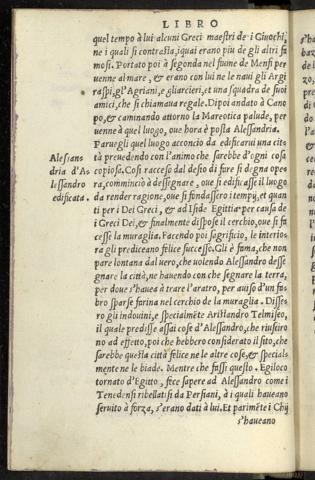 LIBRO
quel tempo à lui alcuni Greci maestri de i Giuochi,
ne i quali si contrasta, iquai erano piu de gli altri fa
mosi. Portato poi à seconda nel fiume de Menfi per
uenne al mare, & erano con lui ne le naui gli Argi
raspi, gl'Agriani, e gliarcieri, et una squadra de suoi
amici, che si chiamaua regale. Dipoi andato à Cano
po, & caminando attorno la Mareotica palude, per
uenne à quel luogo, oue hora è posta Alessandria.
Parue gli quel luogo acconcio da edificarui una cit
tà preuedendo con l'animo che sarebbe d'ogni cosa
copiosa. Cosi racceso dal desio di fare si degna ope
ra, commincio à dessegnare, oue si edificasse il luogo
da render ragione, oue si fondassero i tempij, et quan
ti per i Dei Greci, & ad Iside Egittia per causa de
i Greci Dei, & finalmente dispose il cerchio, oue si fa
cesse la muraglia. Facendo poi sagrificio, le interio
ra gli prediceano felice successo. Gli è fama, che non
pare lontana dal uero, che uolendo Alessandro desse
gnare la città, ne hauendo con che segnare la terra,
per doue s'hauea à trare l'aratro, per auiso d'un fa
bro sparse farina nel cerchio de la muraglia. Disse
ro gli indouini, e specialmēte Aristandro Telmiseo,
il quale predisse assai cose d'Alessandro, che riusciro
no ad effetto, poi che hebbero considerato il sito, che
sarebbe questa città felice ne le altre cose, & special
mente ne le biade. Mentre che fussi questo. Egiloco
tornato d'Egitto, fece sapere ad Alessandro come i
Tenedensi ribellatisi da Persiani, à i quali haueano
seruito à forza, s'erano dati à lui. Et parimēte i Chij
s'haueano
Alessan
dria d'A
lessandro
edificata.